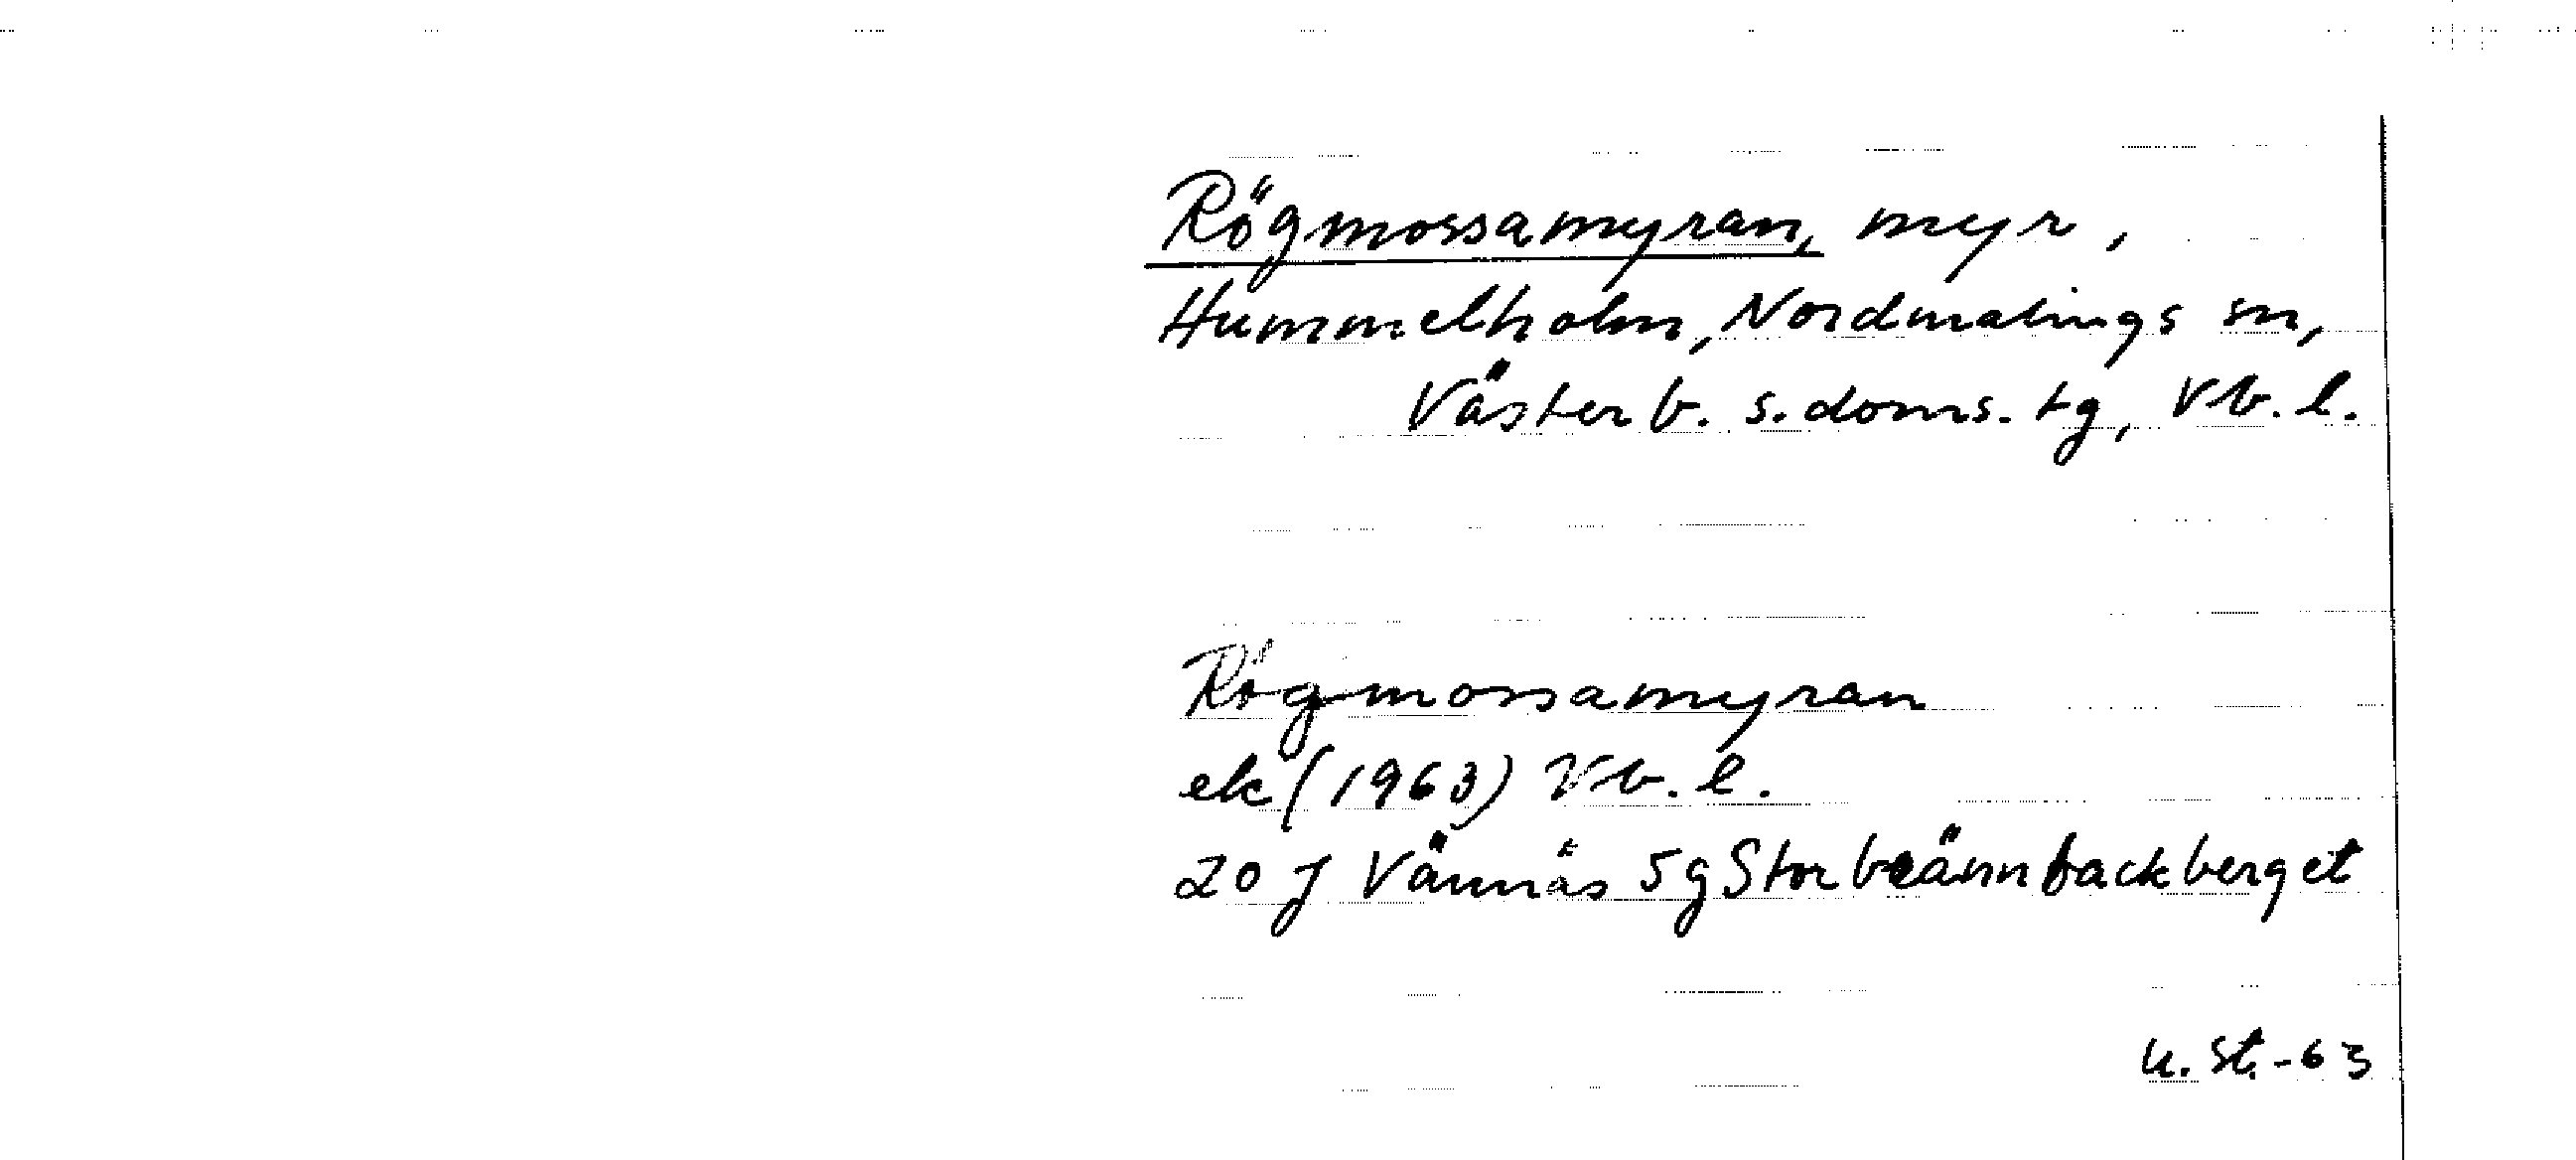 Rögmossamyran, myr,
Hummelholm, Nordmalings sn,
Västerb. s. doms. tg, Vb. l.
Rögmossamyran
ek (1963) Vb. l.
20 J Vännäs 5g Storbrännbackberget
u. St. -63